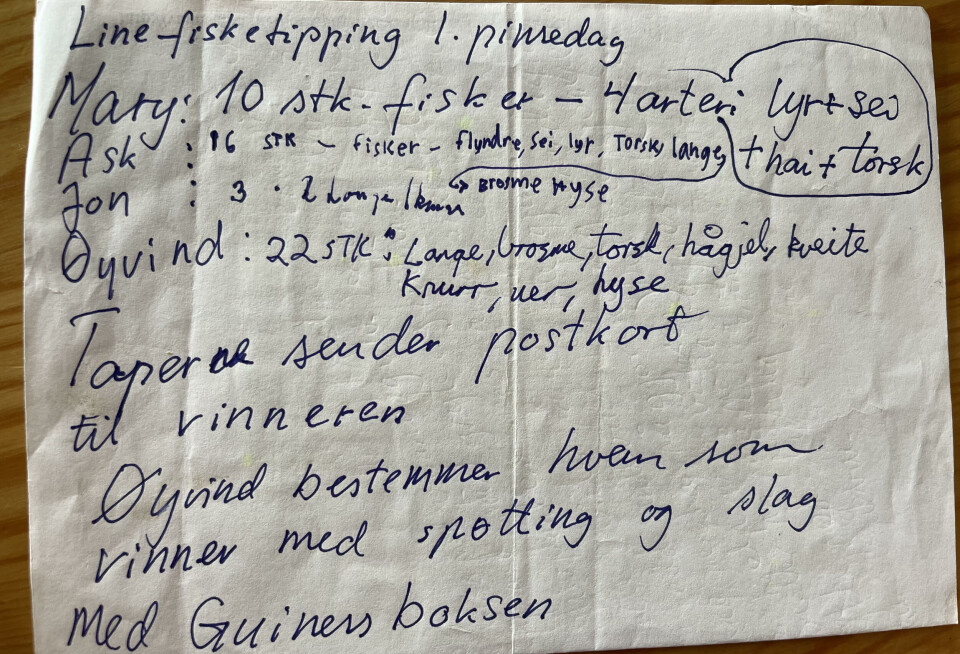 Linefisketipping 1. pinsedag
Mary: 10 stk. fisker - 4 arter: lyr + sei
thai + torsk
Ask : 16 STK - fisker - flyndre, sei, lyr, Torsk, lange,
Brosme Hyse
Jon : 3 · 2 Lange /
Øyvind : 22 STK : Lange, brosme, torsk, hågjel, kveite
Knurr, uer, hyse
Taperne sender postkort
til vinneren
Øyvind bestemmer hvem som
vinner med spotting og slag
med Guiness boksen